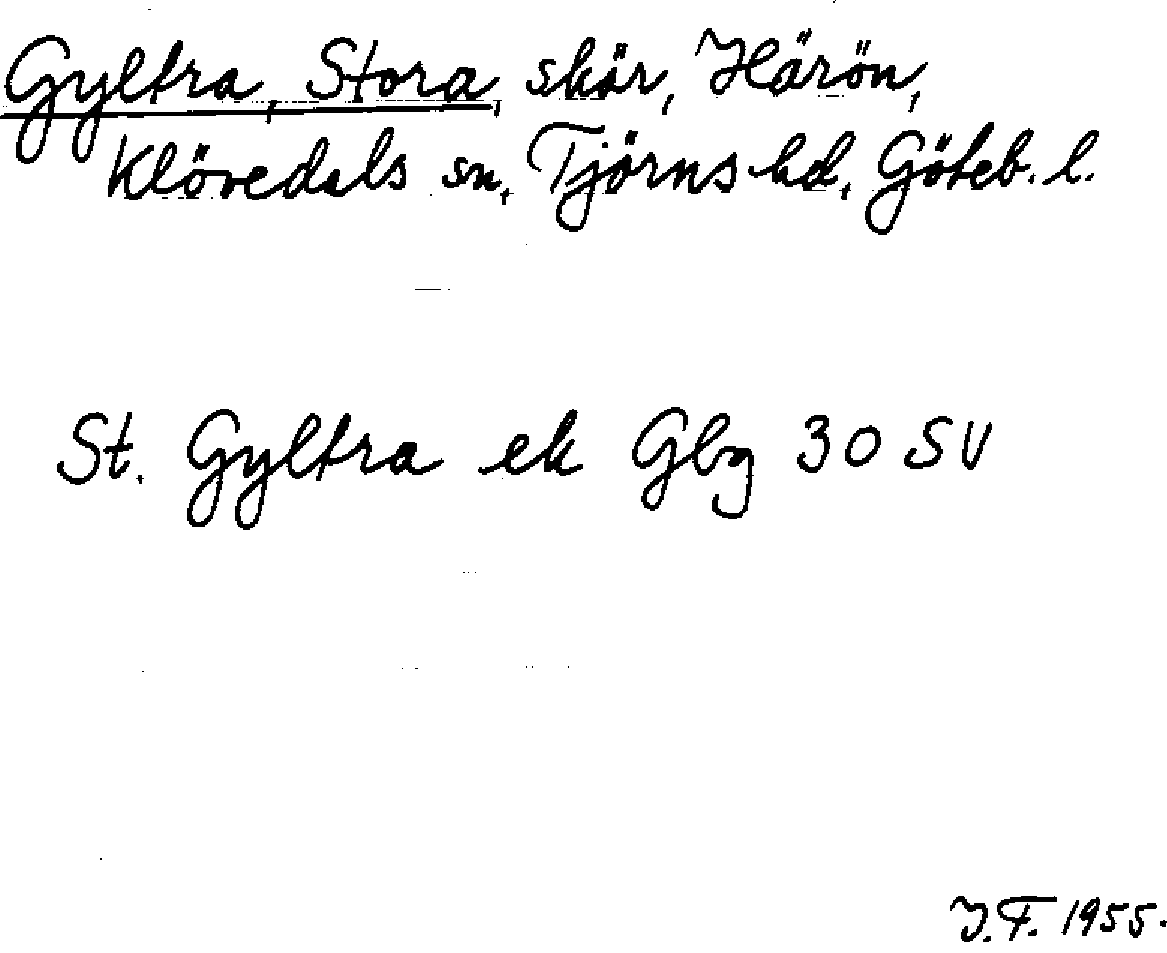 Gyltra, Stora, skär, Härön,
Klövedals sn, Tjörns hd, Göteb. l.
St. Gyltra ek Gbg 30 SV
J.F. 1955.